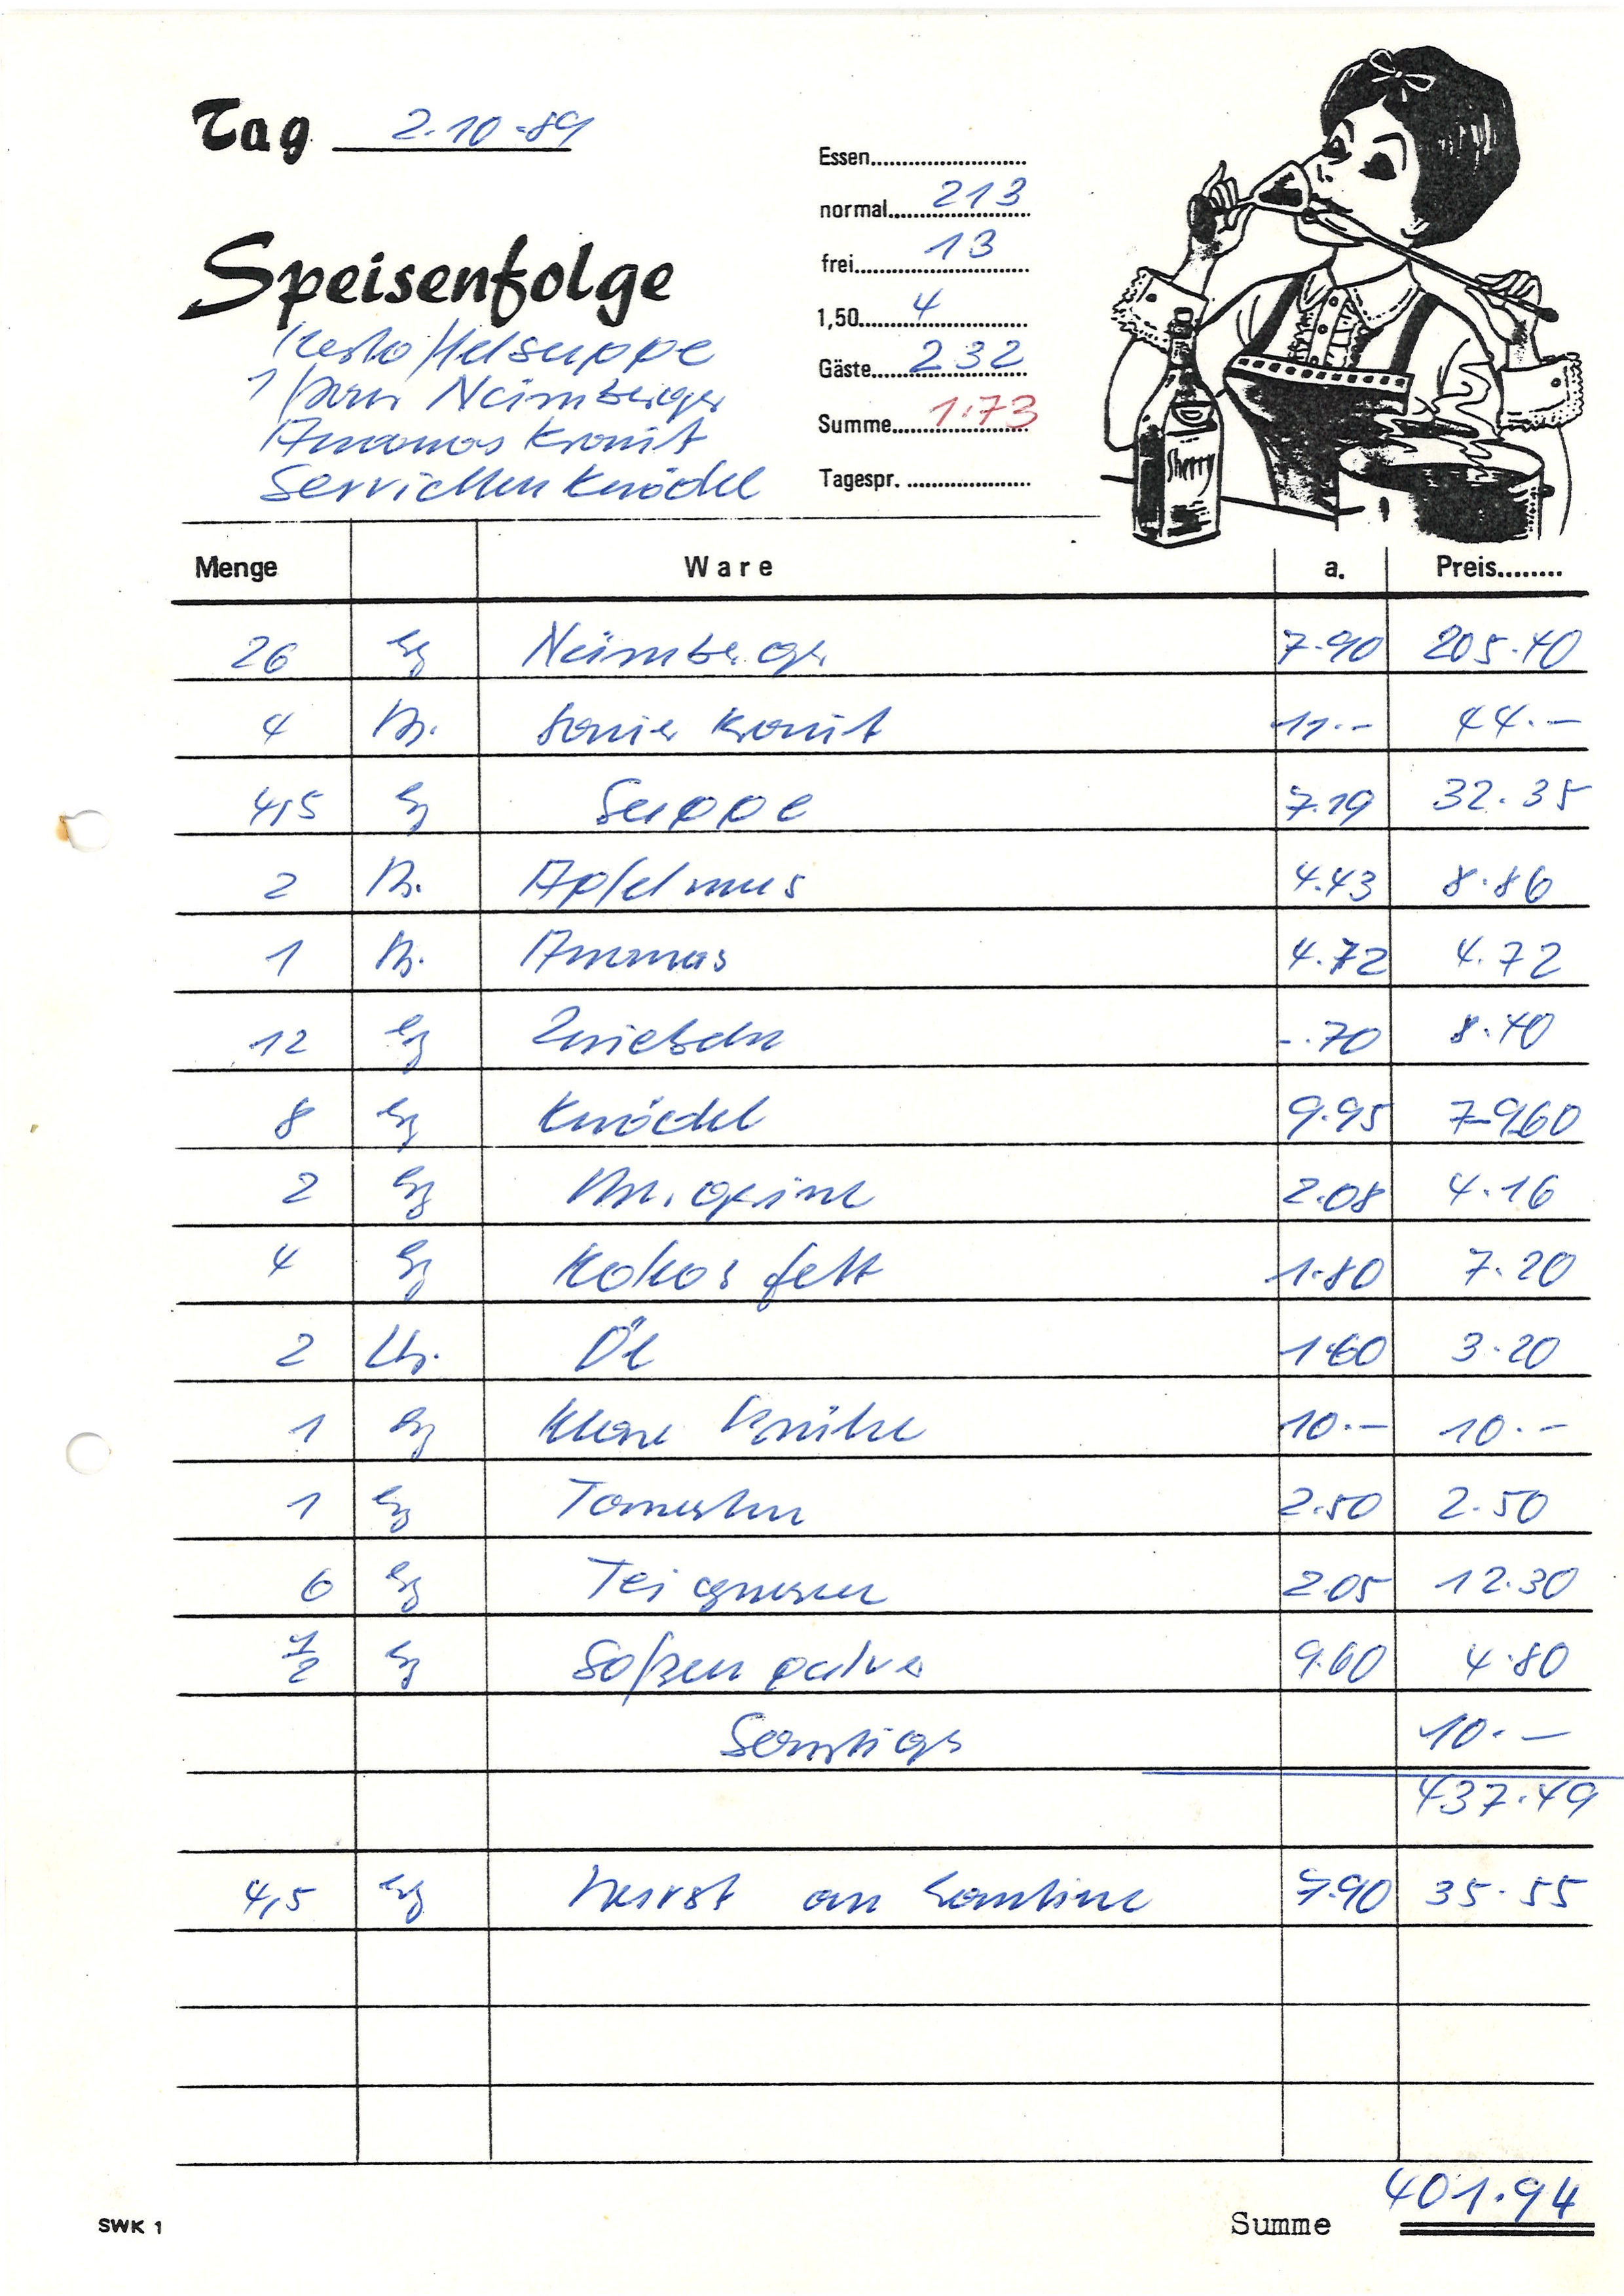 Tag 2.10.89
Essen
normal 213
frei 13
1,50 4
Gäste 232
Summe 1.73
Tagespr.
Speisenfolge
Kartoffelsuppe
1 Paar Nürnberger
Ananas Kraut
Servietten Knödel
Sherry
Menge Ware a. Preis
26 kg Nürnberger 7.90 205.40
4 D. Sauer Kraut 11.- 44.-
4,5 kg Suppe 7.19 32.35
2 D. Apfelmus 4.43 8.86
1 D. Ananas 4.72 4.72
12 kg Zwiebeln -.70 8.40
8 kg Knödel 9.95 79.60
2 kg Margarine 2.08 4.16
4 kg Kokosfett 1.80 7.20
2 Ltr. Öl 1.60 3.20
1 kg Klare Brühe 10.- 10.-
1 kg Tomaten 2.50 2.50
6 kg Teigwaren 2.05 12.30
1/2 kg Soßenpulver 9.60 4.80
Sonstigs 10.-
437.49
4,5 kg Wurst an Kantine 7.90 35.55
401.94
Summe
SWK 1